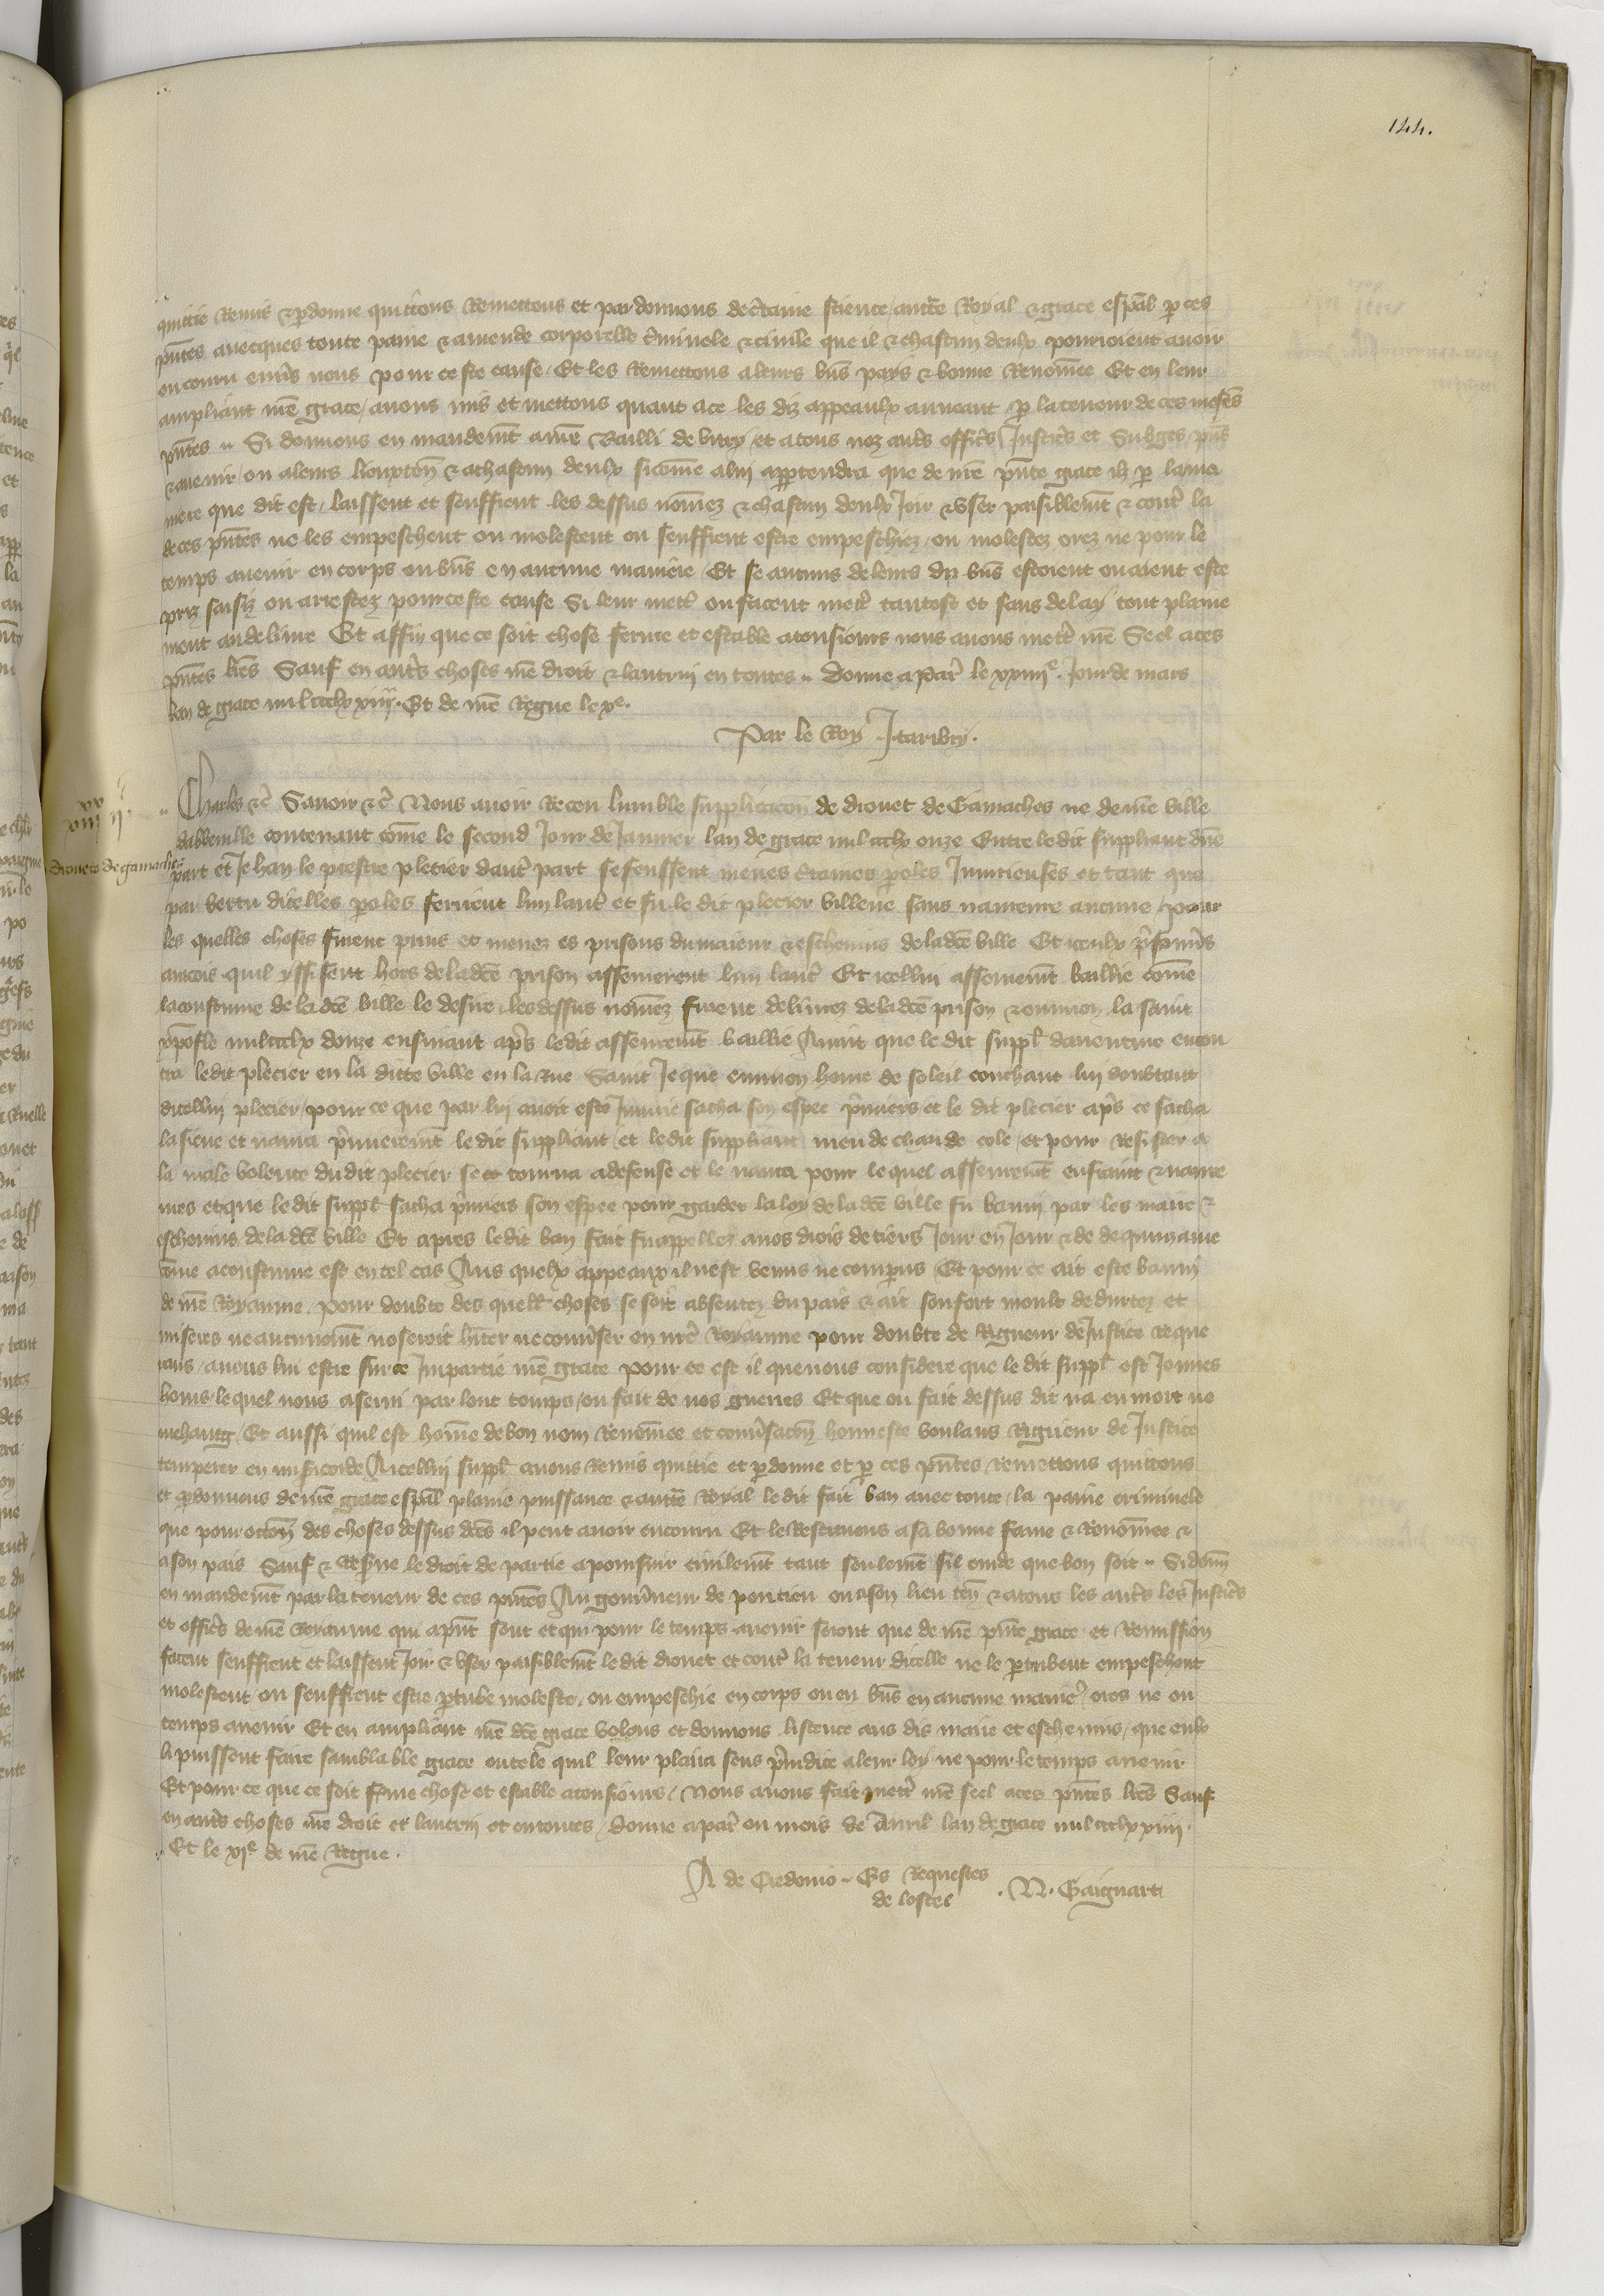 144.
quittie remis & pardonne quittons remettons et pardonnons de ctaine science auctte Royal & grace espal p ces
pntes avecques toute paine & amende corporelle criminele & civile que il & chascun deulx pourroient avoir
encouru envs nous pour ceste cause / Et les remettons a leurs bns pays & bonne renomee Et en leur
ampliant nre grace / avons mis et mettons quant a ce les diz appeaulx au neant / p la teneur de ces mesmes
pntes " Si donnons en mandemt a nre Bailli de Vitry / et a tous noz autrs officrs Justicrs et Subges pns
& avenir / ou a leurs lieuxten & a chascun deulx sicome a lui appartendra que de nre pnte grace ilz p la ma
niere que dit est / laissent et seuffrent les dessus nomez & chascun deulx Joir & User paisiblemt & contr la
de ces pntes ne les empeschent ou molestent ou seuffrent estre empeschiez / ou molestez orez ne pour le
temps avenir en corps ou bns en aucune maniere / Et se aucuns de leurs diz bns estoient ou aient este
priz saisiz ou arrestez pour ceste cause Si leur mettr ou facent mettr tantost et sans delay tout plaine
ment au delivre Et affin que ce soit chose ferme et estable a tousiours nous avons mettr nre Seel a ces
pntes lres Sauf en autrs choses nre droit & lautrui en toutes " Donne a Par le xxiiiie. Jour de mars
lan de grace mil ccclx xiii. Et de nre Regne le xe.
Par le Roy J. tarwby.
xx
viii ii
Drouet de gamaches
Charles &c Savoir &c Nous avoir Receu lumble supplicacon de drouet de Gamaches ne de nre ville
dabbeville contenant come le second Jour de Janvier lan de grace mil ccclx onze Entre le dit suppliant dune
part et Jehan le prestre pletier dautr part se feussent meues certaines poles Iniurieuses et tant que
par vertu dicelles poles ferirent lun lautr et fu le dit pletier villene sans navreure aucune / pour
les quelles choses furent prins et menez es prisons du maieur & eschevins de la dce ville Et iceulx prisonnrs
aincois quil yssisent hors de la dce prison asseurerent lun lautr Et icellui asseuremt baillie come
la coustume de la dce ville le desire / les dessus nomez furent delivrez de la dce prison & environ la saint
xpofle mil ccclx douze ensuiant aprs le dit asseuremt baillie Avint que le dit suppl daventure encon
tra le dit pletier en la ditte ville en la Rue Saint Jeque environ heure de soleil couchant lui doubtant
dicellui pletier / pour ce que par lui avoit este Iniurie sacha son espee prmiers et le dit pletier aprs ce sacha
la siene et navra prmieremt le dit suppliant / et ledit suppliant meu de chaude cole / et pour resister a
la male volente du dit pletier se tourna a defense et le navra pour le quel asseuremt enfraint & navre
ures et que le dit suppl sacha prmiers son espee pour garder la loy de la dce ville fu banni par les maire &
eschevins de la dce ville Et apres ledit ban fait fu appellez a nos drois de tiers Jour en Jour & de quinzaine
come acoustume est en tel cas Aus quelx appeaux il nest venus ne comparus Et pour ce ait este banni
de nre Royaume / Pour doubte des quell choses se soit absentez du pais & ait souffert moult de durtez et
miseres ne aucunemt noseroit hnter ne convser en nre Royaume pour doubte de Rigueur de Justice Reque
rans / avons lui estre sur ce Impartie nre grace pour ce est il que nous considere que le dit suppl est Jones
homs / lequel nous a servi par lonc temps / ou fait de nos guerres Et que ou fait dessus dit na eu mort ne
mehaing / Et aussi quil est home de bon nom renomee et convsacon honneste voulans Rigueur de Justice
temperer en misericorde A icellui suppl avons remis quittie et pdonne et p ces pntes remettons quittons
et pdonnons de nre grace espal plaine puissance & auctte Royal le dit fait ban avec toute / la paine criminele
que pour occon des choses dessus dces il peut avoir encouru Et le restituons a sa bonne fame & renomee &
a son pais Sauf & reserve le droit de partie a poursuir civilemt tant seulemt sil cuide que bon soit " Si donn
en mandemt par la teneur de ces pntes Au gouvneur de pontieu ou a son lieu ten & a tous les autrs les Justicrs
et officrs de nre Royaume qui apnt sont et qui pour le temps avenir seront que de nre pnte grace et remission
facent seuffrent et laissent Joir & User paisiblemt le dit drouet et contr la teneur dicelle ne le ptubent empeschent
molestent ou seuffrent estre ptube moleste / ou empeschie en corps ou en bns en aucune manier ores ne ou
temps avenir Et en ampliant nre dce grace volons et donnons licence aus dis maire et eschevins / que eulx
li puissent faire samblable grace ou tele quil leur plaira sens prjudice a leur loy ne pour le temps avenir
Et pour ce que ce soit ferme chose et estable a tousiours / Nous avons fait mettr nre seel a ces pntes lres Sauf
en autrs choses nre droit et lautrui et en toutes / Donne a par ou mois de Avril lan de grace mil ccclx xiiii.
Et le xie de nre Regne.
A de Credonio - Es Requestes
de lostel . N. Gaignart